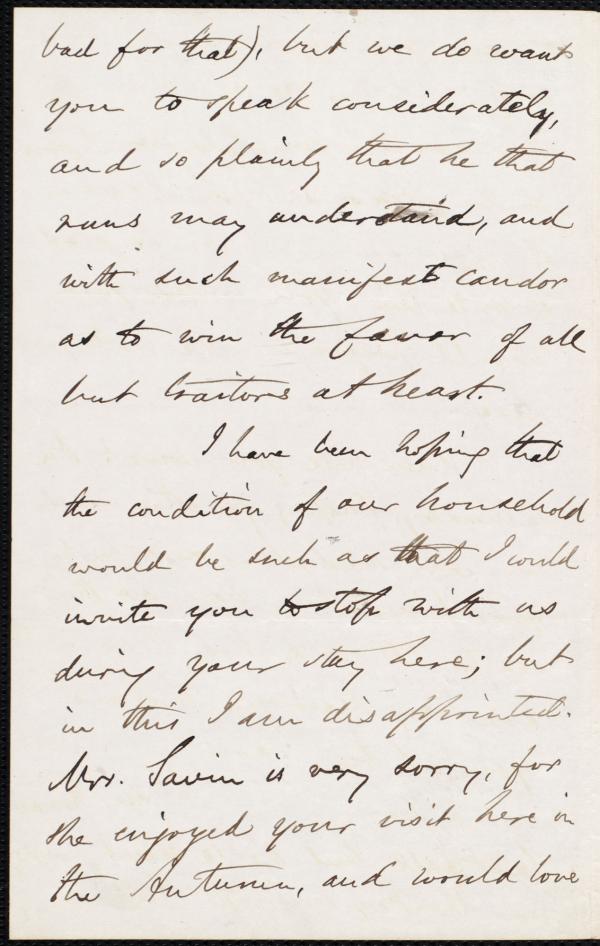 bad for that), but we do want
you to speak considerately,
and so plainly that he that
runs may understand, and
with such manifest candor
as to win the favor of all
but traitors at heart.
I have been hoping that
the condition of our household
would be such as that I could
invite you to stop with us
during your stay here; but
in this I am disappointed.
Mrs. Savin is very sorry, for
she enjoyed your visit here in
the Autumn, and would love